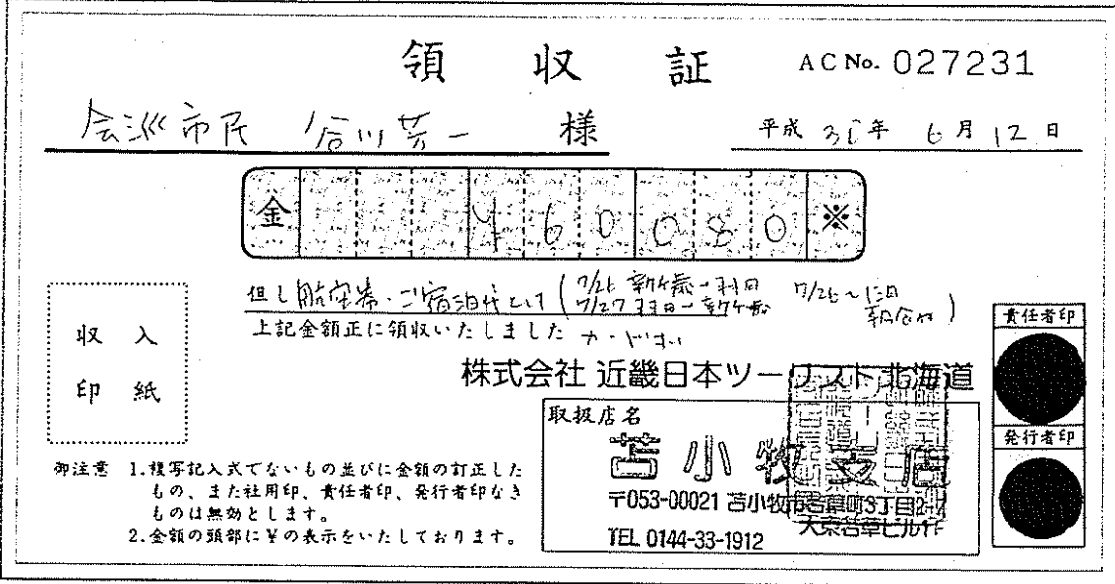 領 収 証
AC No. 027231
会派市民 谷川芳一 様
平成 30年 6月 12日
金 ¥60080※
但し航空券・ご宿泊代として(7/26 新千歳-羽田 7/26~1泊
7/27 羽田-新千歳 朝食付)
上記金額正に領収いたしました カード払い
収入
印紙
株式会社 近畿日本ツーリスト北海道
責任者印
取扱店名
苫小牧支店
〒053-00021 苫小牧市若草町3丁目2-7
大東若草ビル1F
TEL 0144-33-1912
発行者印
御注意 1.複写記入式でないもの並びに金額の訂正した
もの、また社用印、責任者印、発行者印なき
ものは無効とします。
2.金額の頭部に¥の表示をいたしております。